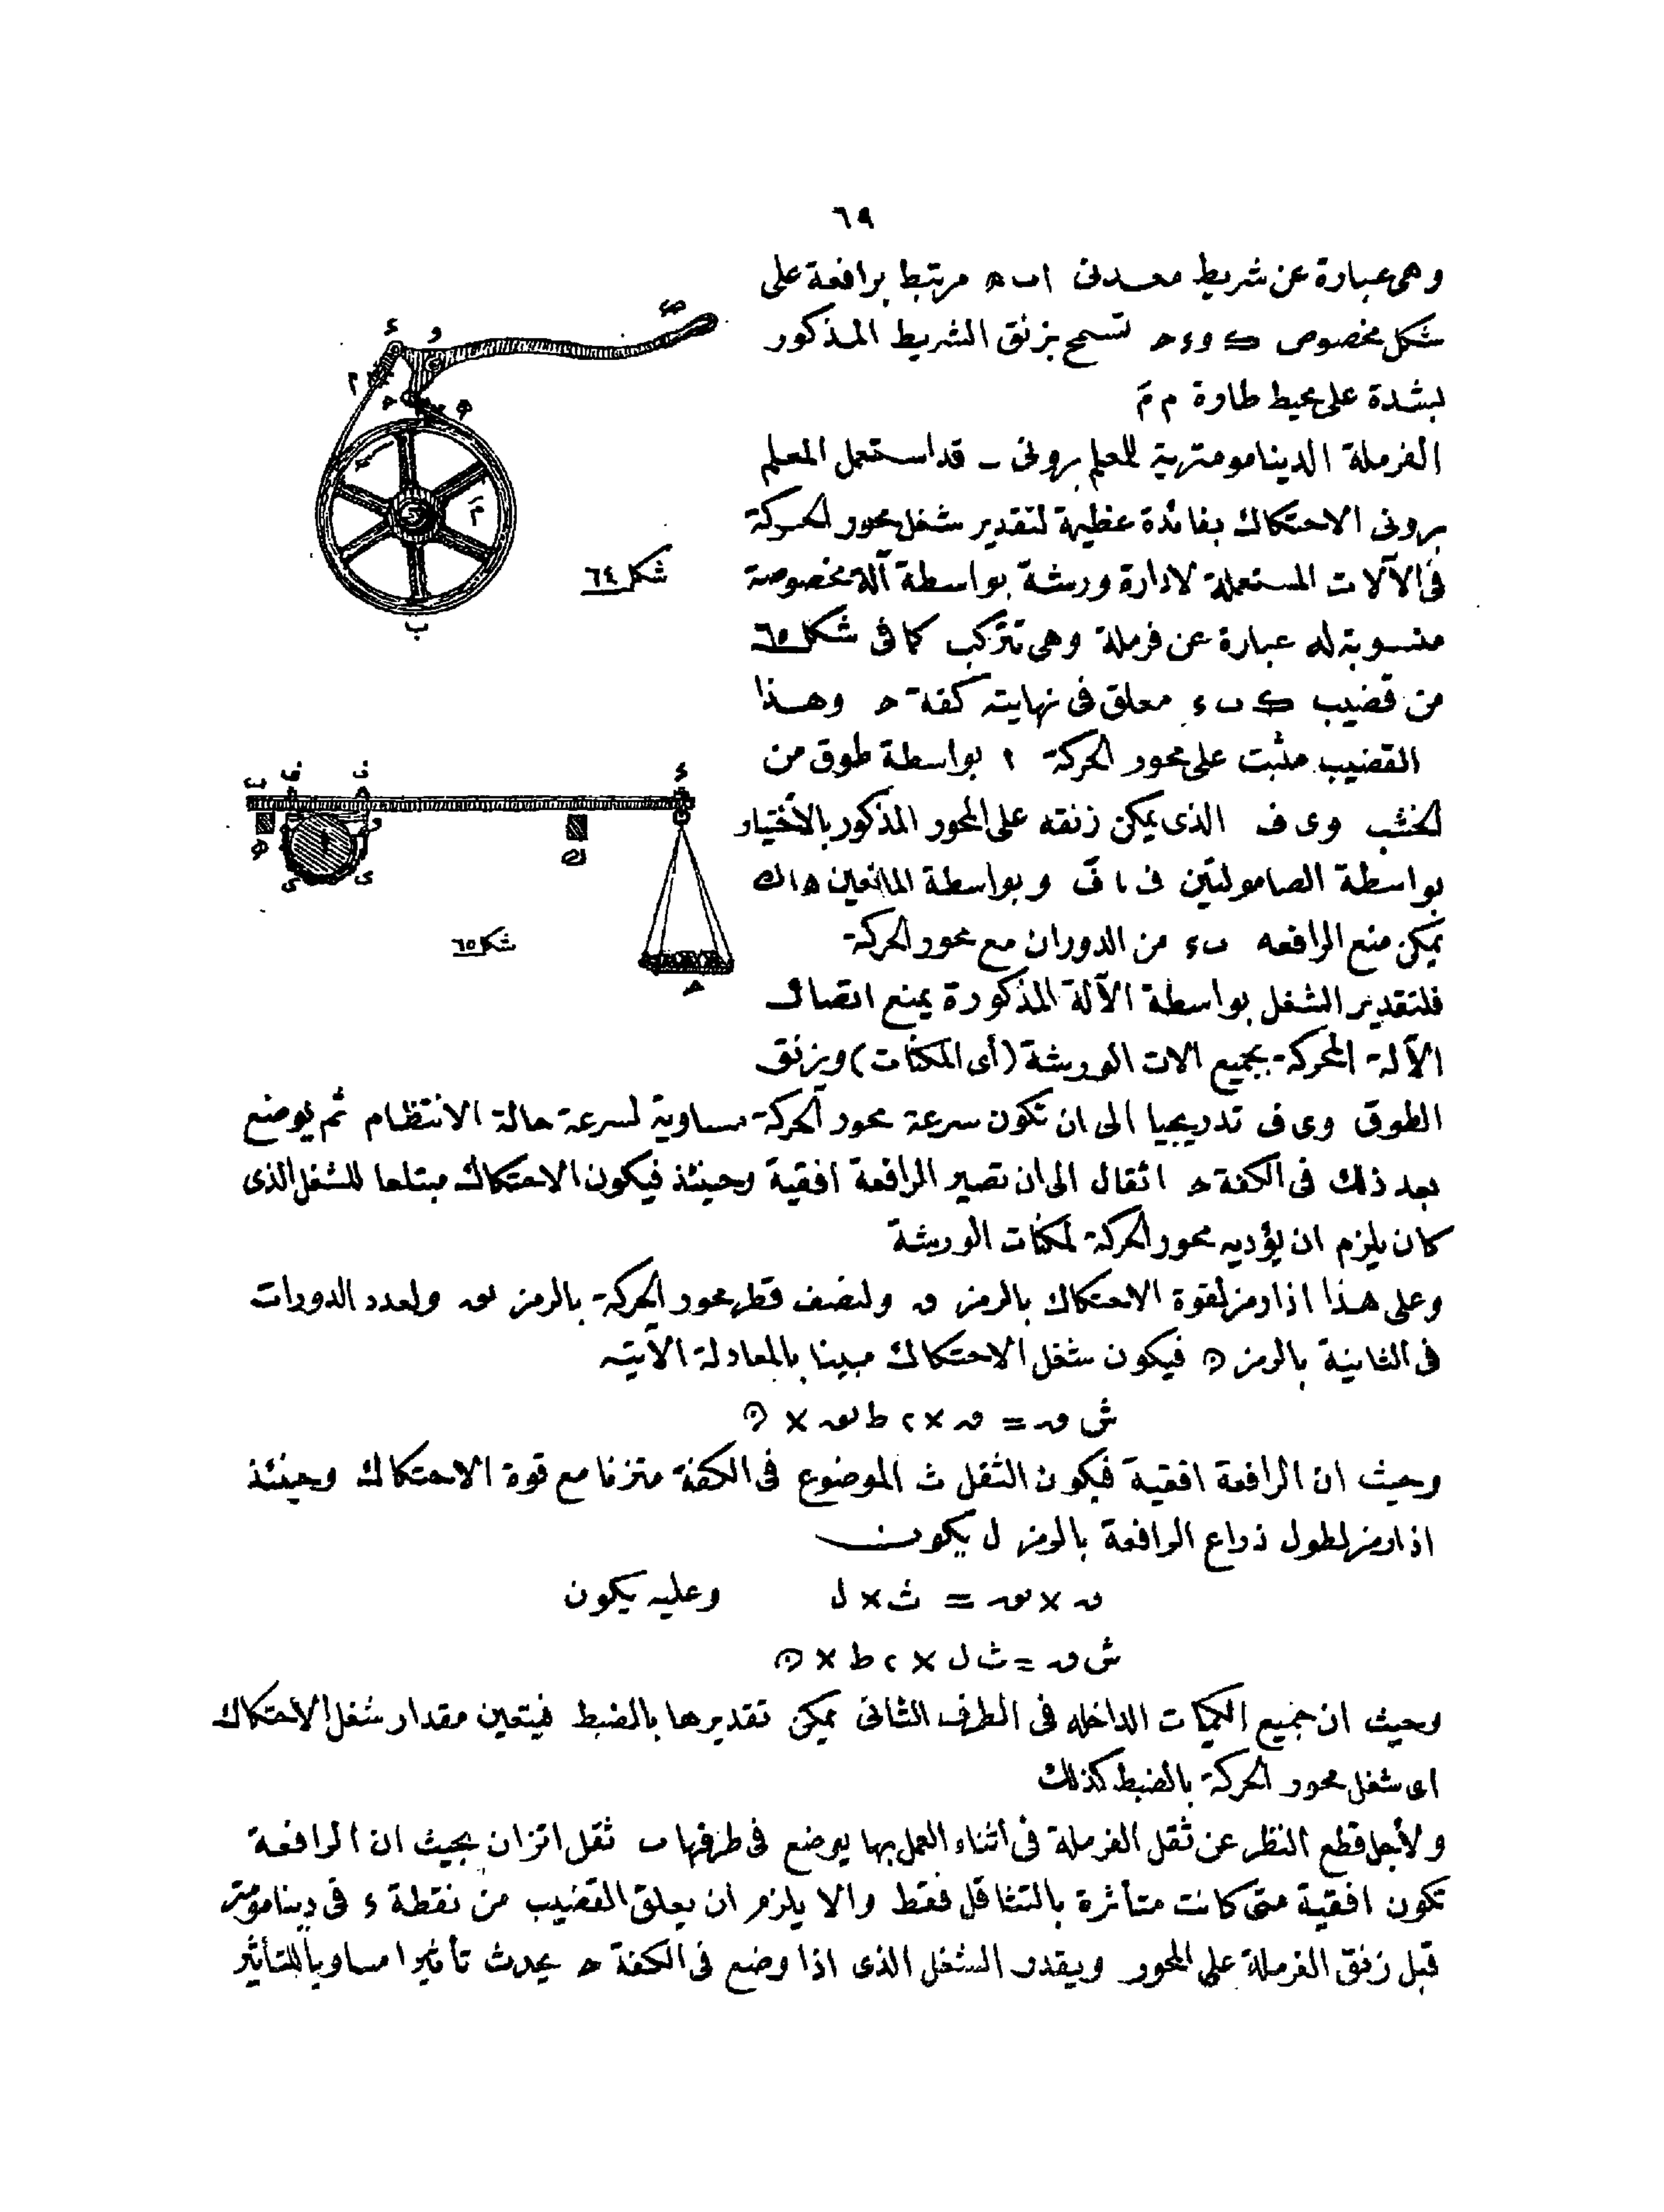 ٦٩
وهى عبارة عن شريط معدنى اب ه مرتبط برافعة على
شكل مخصوص ك و ء ح تسمح بزنق الشريط المذكور
بشدة على محيط طارة م مَ
الفرملة الدينامومترية للمعلم برونى ـ قد استعمل المعلم
برونى الاحتكاك بفائدة عظيمة لتقدير شغل محور الحركة
فى الآلات المستعملة لادارة ورشة بواسطة آلة مخصوصة
منسوبة له عبارة عن فرملة وهى تتركب كما فى شكل ٦٥
من قضيب ك ب ء معلق فى نهايته كفة ح وهذا
القضيب مثبت على محور الحركة ا بواسطة طوق من
الخشب و ى ف الذى يمكن زنقه على المحور المذكور بالاختيار
بواسطة الصامولتين ف ، فَ وبواسطة المانعين ه ، ك
يمكن منع الرافعه ب ء من الدوران مع محور الحركة
فلتقدير الشغل بواسطة الآلة المذكورة يمنع اتصال
الآلة المحركة بجميع الات الورشة (أى المكنات) ويزنق
الطوق و ى ف تدريجيا الى ان تكون سرعة محور الحركة مساوية لسرعة حالة الانتظام ثم يوضع
بعد ذلك فى الكفة ح اثقال الى ان تصير الرافعة افقية وحينئذ فيكون الاحتكاك مبتلعا للشغل الذى
كان يلزم ان يؤديه محور الحركة لمكنات الورشة
وعلى هذا اذا رمز لقوة الاحتكاك بالرمز ں ولنصف قطر محور الحركة بالرمز نق ولعدد الدورات
فى الثانية بالرمز ن فيكون شغل الاحتكاك مبينا بالمعادلة الآتية
ش ں = ں × ٢ ط نق × ن
وحيث ان الرافعة افقية فيكون الثقل ث الموضوع فى الكفة متزنا مع قوة الاحتكاك وحينئذ
اذا رمز لطول ذراع الرافعة بالرمز ل يكون
ں × نق = ث × ل وعليه يكون
ش ں = ث ل × ٢ ط × ن
وحيث ان جميع الكميات الداخله فى الطرف الثانى يمكن تقديرها بالضبط فيتعين مقدار شغل الاحتكاك
اى شغل محور الحركة بالضبط كذلك
ولأجل قطع النظر عن ثقل الفرملة فى اثناء العمل بها يوضع فى طرفها ب ثقل اتزان بحيث ان الرافعة
تكون افقية متى كانت متأثرة بالتثاقل فقط والا يلزم ان يعلق القضيب من نقطة ء فى دينامومتر
قبل زنق الفرملة على المحور ويقدر الشغل الذى اذا وضع فى الكفة ح يحدث تأثيرا مساويا للتأثير
شكل ٦٤
شكل ٦٥